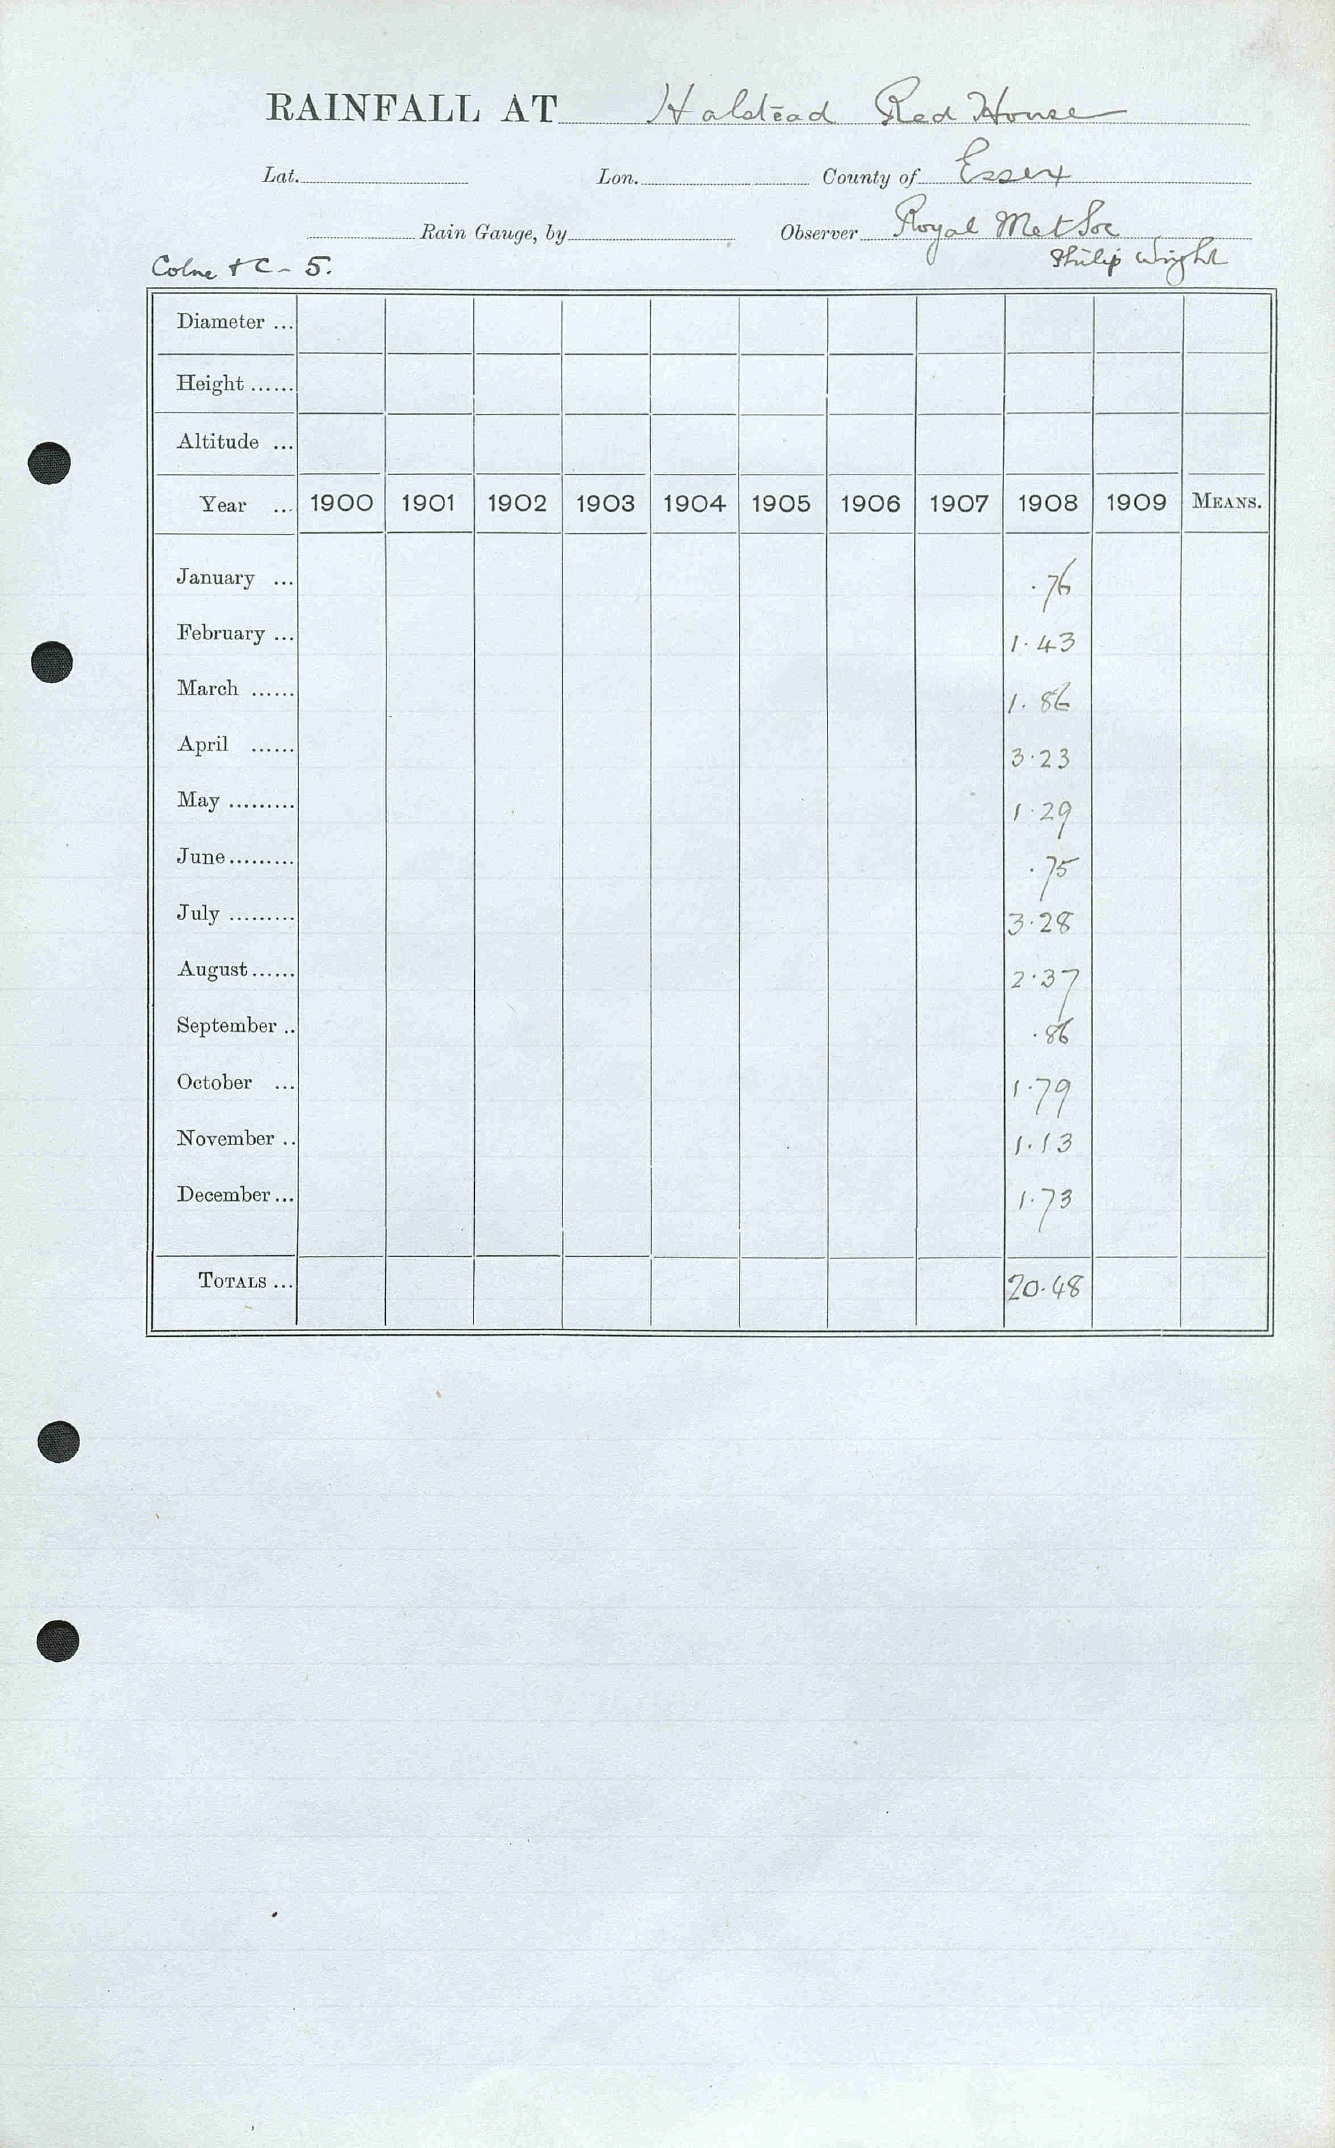 RAINFALL AT Halstead Red House
Lat. Lon. County of Essex
Rain Gauge, by Observer Royal Met Soc
Colne & C - 5. Philip Wright
Diameter ...
Height ......
Altitude ...
Year ... 1900 1901 1902 1903 1904 1905 1906 1907 1908 1909 MEANS.
January ... .76
February ... 1.43
March ...... 1.86
April ...... 3.23
May ......... 1.29
June ......... .75
July ......... 3.28
August ...... 2.37
September .. .86
October ... 1.79
November .. 1.13
December ... 1.73
TOTALS ... 20.48